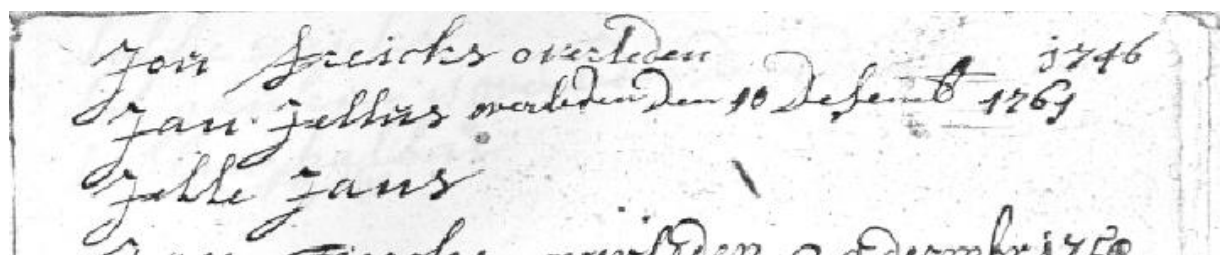 Jon freichs overleden 1746
Jan Jellius overleden Den 10 Desemb 1761
Jelle Jans
overleden 1750